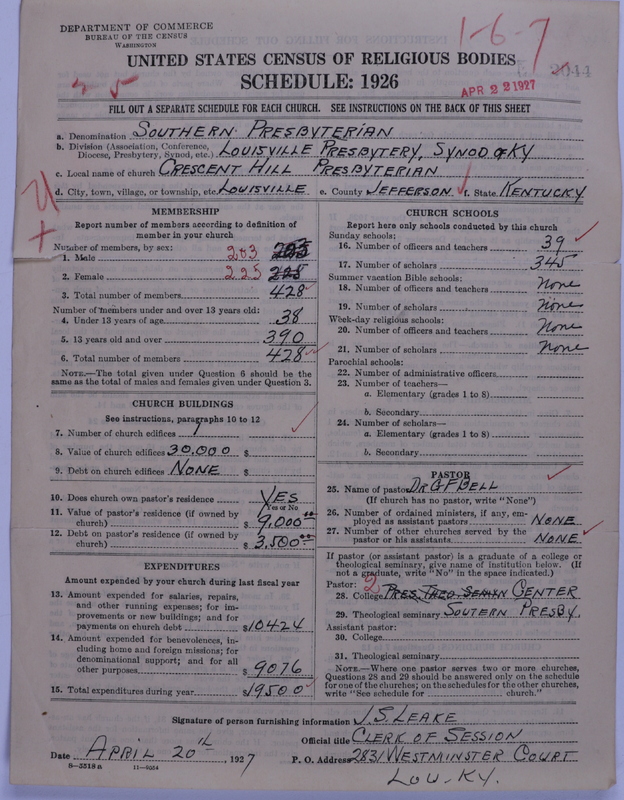 DEPARTMENT OF COMMERCE
BUREAU OF THE CENSUS
WASHINGTON
1-6-7
UNITED STATES CENSUS OF RELIGIOUS BODIES
SCHEDULE: 1926
APR 22 1927
FILL OUT A SEPARATE SCHEDULE FOR EACH CHURCH. SEE INSTRUCTIONS ON THE BACK OF THIS SHEET
a. Denomination SOUTHERN PRESBYTERIAN
b. Division (Association, Conference, Diocese, Presbytery, Synod, etc.) LOUISVILLE PRESBYTERY, SYNOD OF KY
c. Local name of church CRESCENT HILL PRESBYTERIAN
d. City, town, village, or township, etc. LOUISVILLE e. County JEFFERSON f. State KENTUCKY
MEMBERSHIP
Report number of members according to definition of
member in your church
Number of members, by sex:
1. Male 203
2. Female 225 225
3. Total number of members 428
Number of members under and over 13 years old:
4. Under 13 years of age 38
5. 13 years old and over 390
6. Total number of members 428
NOTE.—The total given under Question 6 should be
same as the total of males and females given under Question 3.
CHURCH BUILDINGS
See instructions, paragraphs 10 to 12
7. Number of church edifices 1
8. Value of church edifices 30,000 $
9. Debt on church edifices NONE $
10. Does church own pastor's residence YES
Yes or No
11. Value of pastor's residence (if owned by
church) $ 9,000.00
12. Debt on pastor's residence (if owned by
church) $ 3,500.00
EXPENDITURES
Amount expended by your church during last fiscal year
13. Amount expended for salaries, repairs,
and other running expenses; for im-
provements or new buildings; and for
payments on church debt $10424
14. Amount expended for benevolences, in-
cluding home and foreign missions; for
denominational support; and for all
other purposes $ 9076
15. Total expenditures during year $19500
CHURCH SCHOOLS
Report here only schools conducted by this church
Sunday schools:
16. Number of officers and teachers 39
17. Number of scholars 345
Summer vacation Bible schools:
18. Number of officers and teachers None
19. Number of scholars None
Week-day religious schools:
20. Number of officers and teachers None
21. Number of scholars None
Parochial schools:
22. Number of administrative officers
23. Number of teachers—
a. Elementary (grades 1 to 8)
b. Secondary
24. Number of scholars—
a. Elementary (grades 1 to 8)
b. Secondary
PASTOR
25. Name of pastor DR G F BELL
(If church has no pastor, write "None")
26. Number of ordained ministers, if any, em-
ployed as assistant pastors NONE
27. Number of other churches served by the
pastor or his assistants NONE
If pastor (or assistant pastor) is a graduate of a college or
theological seminary, give name of institution below. (If
not a graduate, write "No" in the space indicated.)
Pastor: 2
28. College PRES. THEO. SEMIN CENTER
29. Theological seminary SOUTERN PRESBY.
Assistant pastor:
30. College
31. Theological seminary
NOTE.—Where one pastor serves two or more churches,
Questions 28 and 29 should be answered only on the schedule
for one of the churches; on the schedules for the other churches,
write "See schedule for church."
Signature of person furnishing information J. S. LEAKE
Official title CLERK OF SESSION
Date APRIL 20th, 1927 P. O. Address 2831 WESTMINSTER COURT
LOU-KY.
8-5518a 11-9034